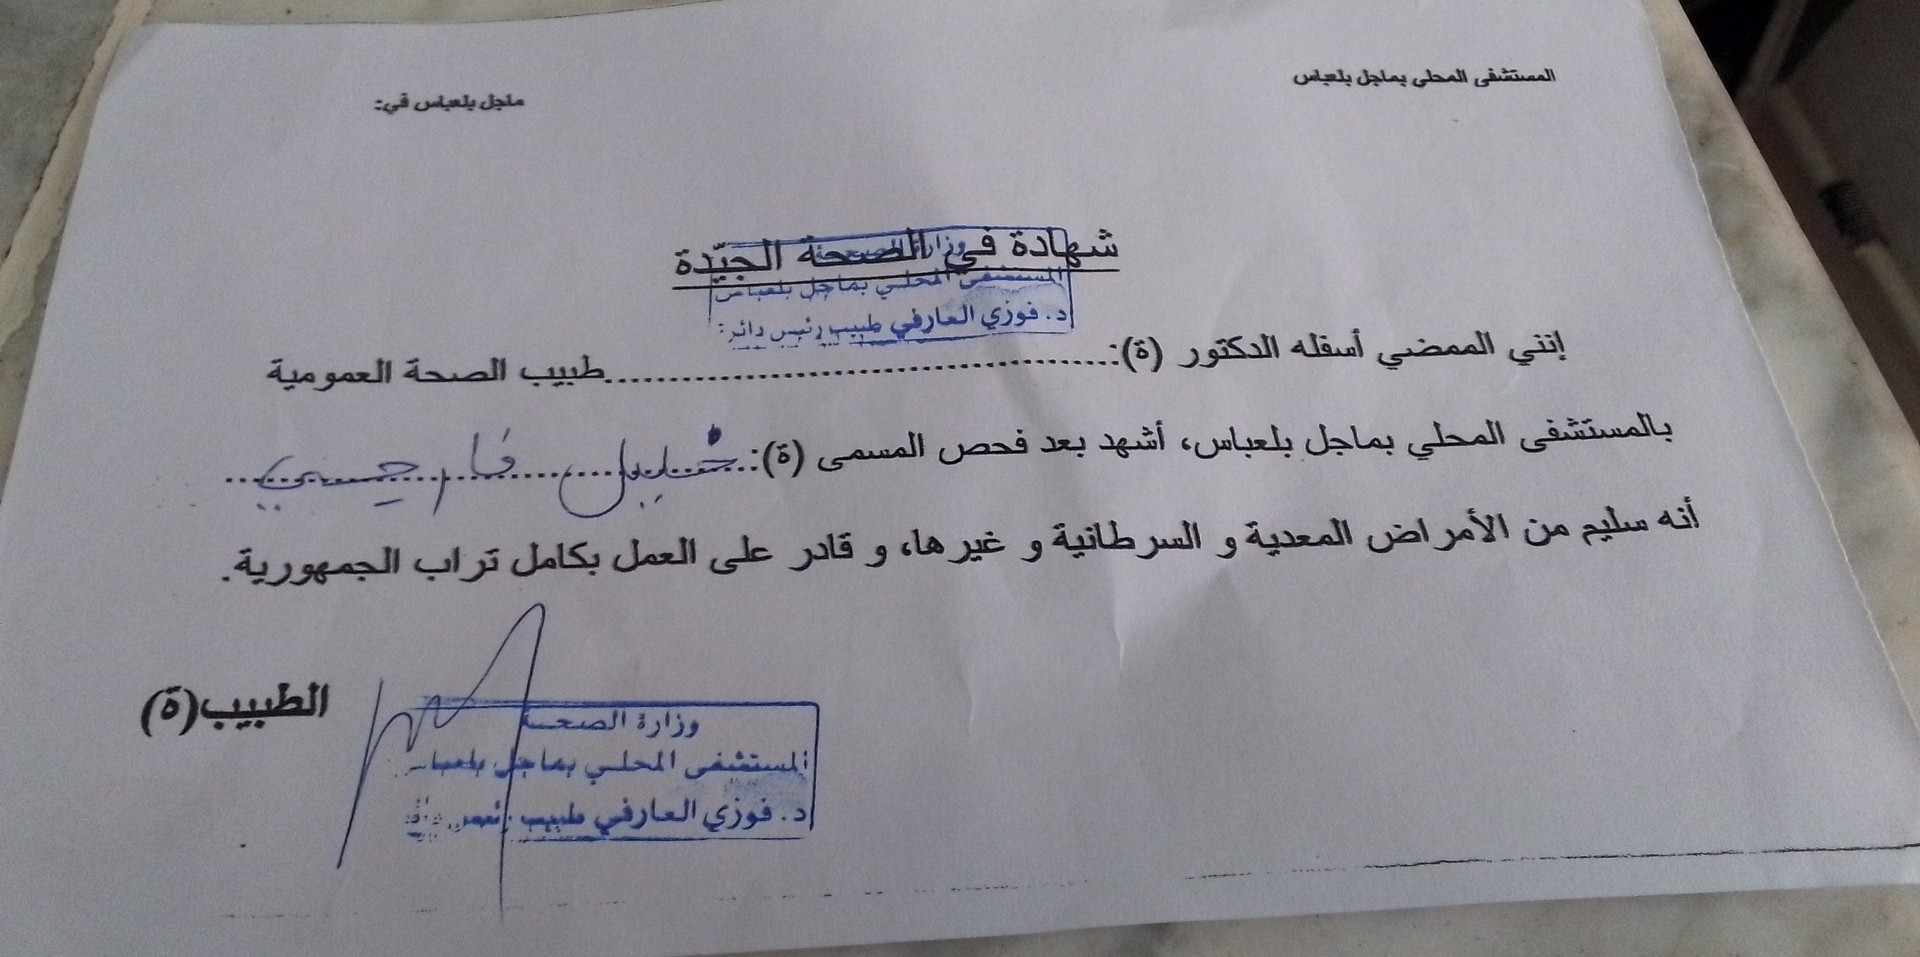 المستشفى المحلي بماجل بلعباس
ماجل بلعباس في:
شهادة في الصحة الجيّدة
وزارة الصحة
المستشفى المحلي بماجل بلعباس
د. فوزي العارفي طبيب رئيس
إنني الممضي أسفله الدكتور (ة):........................................طبيب الصحة العمومية
بالمستشفى المحلي بماجل بلعباس، أشهد بعد فحص المسمى (ة):
أنه سليم من الأمراض المعدية و السرطانية و غيرها، و قادر على العمل بكامل تراب الجمهورية.
الطبيب(ة)
وزارة الصحة
المستشفى المحلي بماجل بلعباس
د. فوزي العارفي طبيب